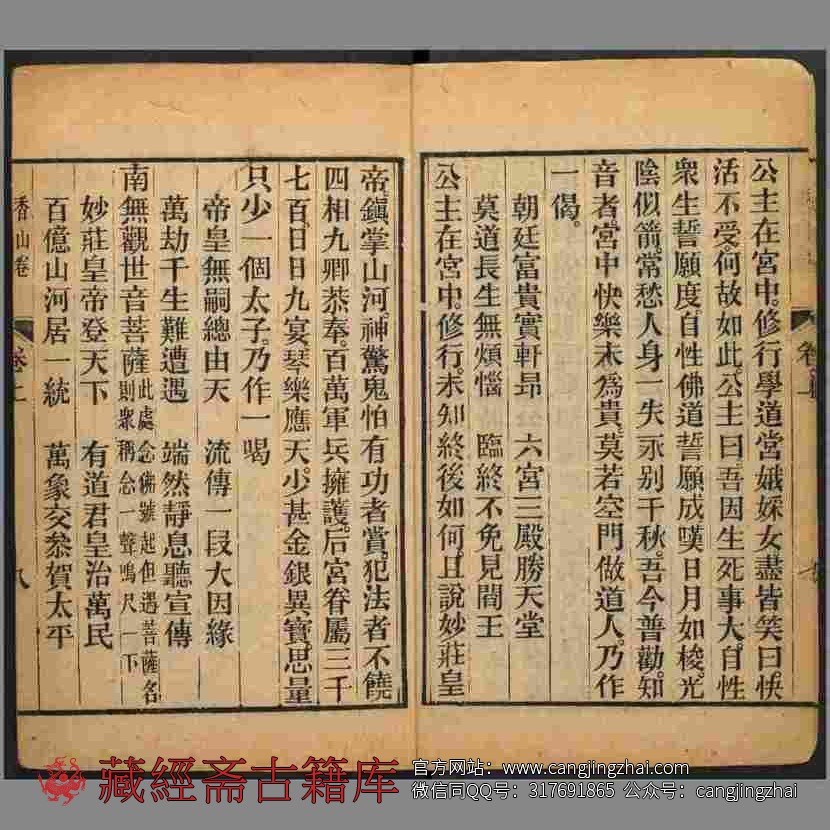 公主在宮中。修行學道宮娥婇女盡皆笑曰。快
活不受何故如此。公主曰吾因生死事大。自性
衆生誓願度。自性佛道誓願成嘆日月如梭。光
陰似箭。常愁人身一失永别千秋。吾今普勸。知
音者宮中快樂未為貴。莫若空門做道人。乃作
一偈。
朝廷富貴實軒昂　六宮三殿勝天堂
莫道長生無煩惱　臨終不免見閻王
公主在宮中。修行。未知終後如何。且說妙莊皇
帝。鎮掌山河。神驚鬼怕有功者賞。犯法者不饒
四相九卿恭奉。百萬軍兵擁護。后宮眷屬三千
七百。日日九宴。琴樂應天。少甚金銀異寶。思量
只少一個太子。乃作一喝
帝皇無嗣總由天　流傳一段大因緣
萬劫千生難遭遇　端然靜息聽宣傳
南無觀世音菩薩此處念佛號起但遇菩薩名則衆稱念一聲鳴尺一下
妙莊皇帝登天下　有道君皇治萬民
百億山河居一統　萬象交叅賀太平
香山卷　卷上　八
藏經斋古籍库
官方网站：www.cangjingzhai.com
微信同QQ号：317691865 公众号：cangjingzhai